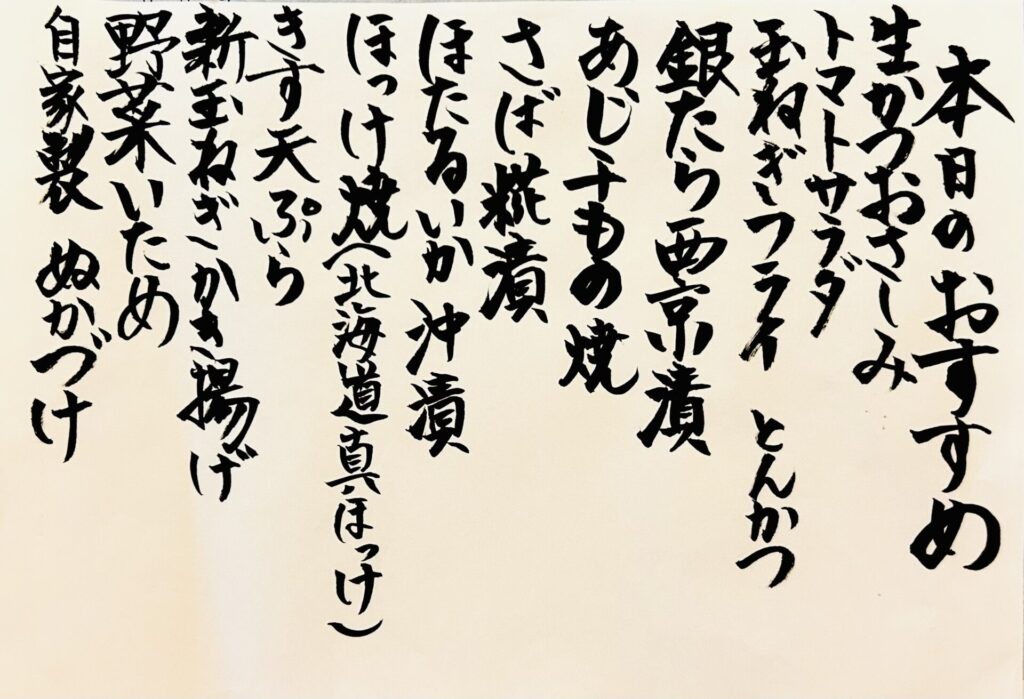 本日のおすすめ
生かつおさしみ
トマトサラダ
玉ねぎフライ とんかつ
銀たら西京漬
あじ干もの焼
さば糀漬
ほたるいか沖漬
ほっけ焼(北海道真ほっけ)
きす天ぷら
新玉ねぎかき揚げ
野菜いため
自家製 ぬかづけ